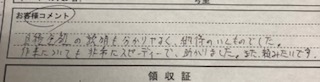 お客様コメント
の説明も分かりやすく、納得のいくものでした。
作業についても非常にスピーディーで、助かりました。また、頼みたいです。
領収証